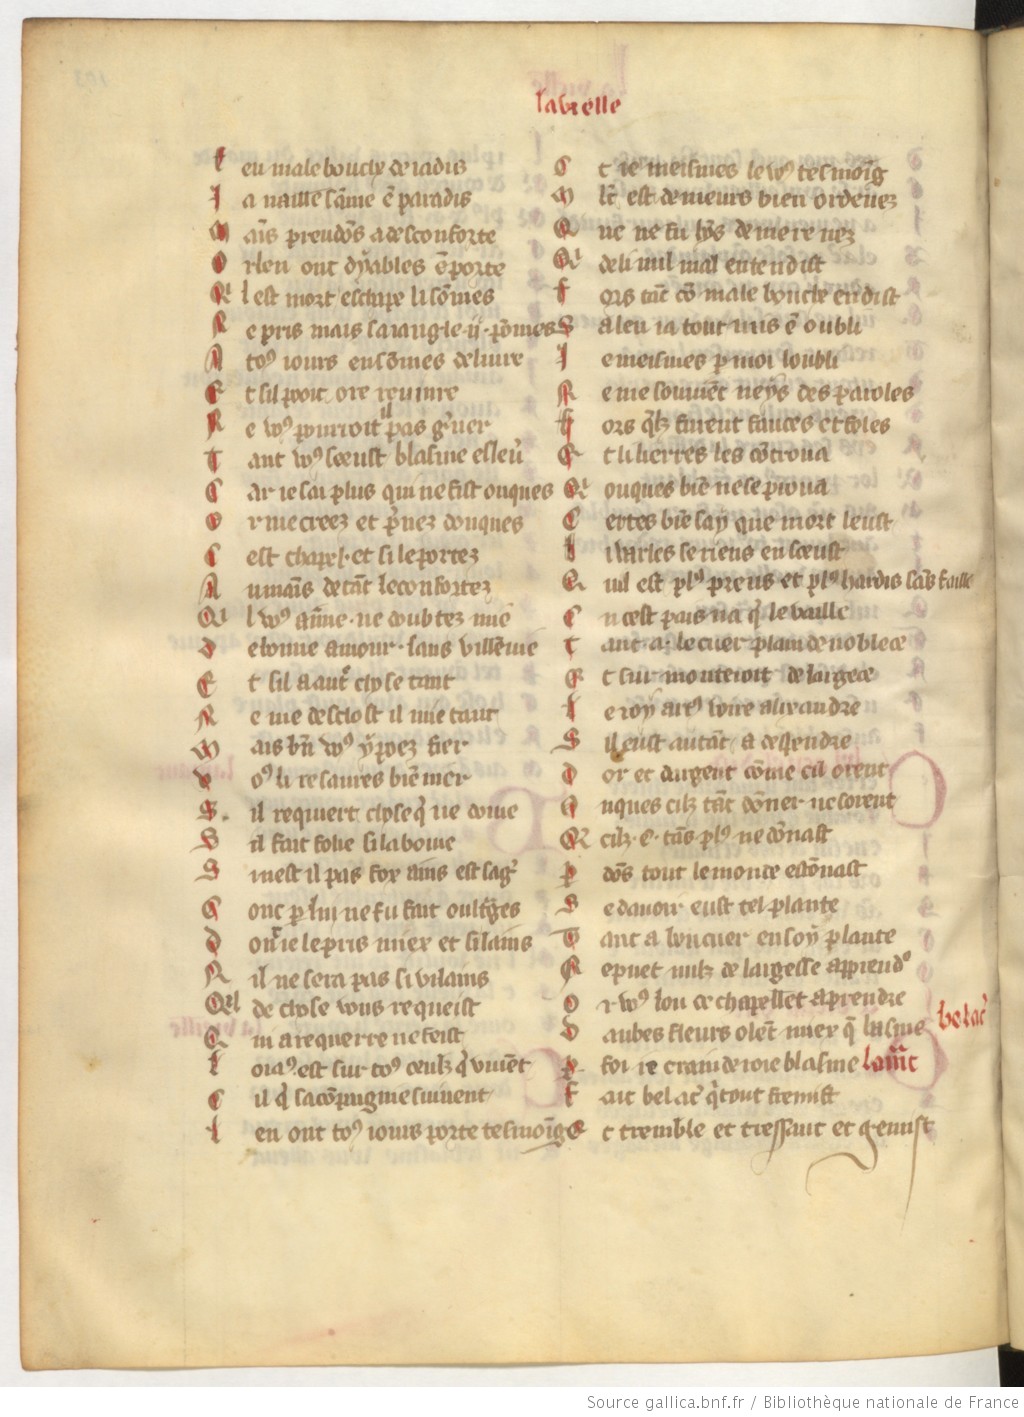 la vielle
F eu male bouche de iadis
I a naille same e paradis
M ais preudos a desconforte
O r len ont dyables eporte
Q l est mort eschape li somes
R e pris mais sa iangle ii pomes
A toꝰ iours en somes deliure
E t sil pooit ore reuiure
N e wꝰ pourroit il pas gˢuer
T ant wꝰ sceust blasme esleuˢ
C ar ie sai plus qui ne fist onques
O r me creez et pˢnez donques
C est chapel et si le portez
A u mais de tat le confortez
Ql wꝰ aime ne doubtez mie
D e bonne amour sans villenie
E t sil a autˢ chose tant
N e me desclost il mie tant
M ais bn wꝰ ypoez fier
V oꝰ li resaures bie nier
S il requiert chose qˢ ne doine
S il fait folie si la boiue
S i nest il pas fox ains est sagˢ
C onc p lui ne fu fait oultˢges
D onˢ ie le pris miex et si lains
N il ne sera pas si vilains
Qel de chose vous requeist
Q ui a requerre ne feist
L oiaꝰ est sur toꝰ ceulz qˢ viuent
C il qˢ sa compaignie suiuent
L en ont toꝰ iours porte tesmoig
E t ie meismes le wꝰ tesmoig
M lt est de meurs bien ordenez
Q ue ne fu hos de mere nez
Q de li nul mal entendist
F ors tat co male bouche en dist
S a len ia tout mis e oubli
I e meismes p moi loubli
N e me souuiet neys des paroles
F ors qˢlz furent fauces et foles
E t li lierres les cotroua
Q onques bie ne se proua
C ertes bie say que mort leust
I i varles se riens en sceust
Q uil est plꝰ preus et plꝰ hardis sas faille
E n cest pais na qˢ le vaille
T ant a le cuer plain de noblece
E t sur monteroit de largece
L e roy arꝰ voire alixandre
S il eust autat a despendre
D or et dargent come cil orent
O nques cilz tat doner ne sorent
Q cilz c tas plꝰ ne donast
P dos tout le monde estonast
S e dauoir eust tel plante
T ant a bon cuer en soy plante
N e puet nulz de largesse apprendˢ
O r wꝰ lou ce chapellet a prendre
D au bes fleurs olent miex qˢ basme
bel acˢ
P foi ie craindroie blasme lamat
F ait bel acˢ qˢ tout fremist
E t tremble et tressaut et gemist
Source gallica.bnf.fr / Bibliothèque nationale de France